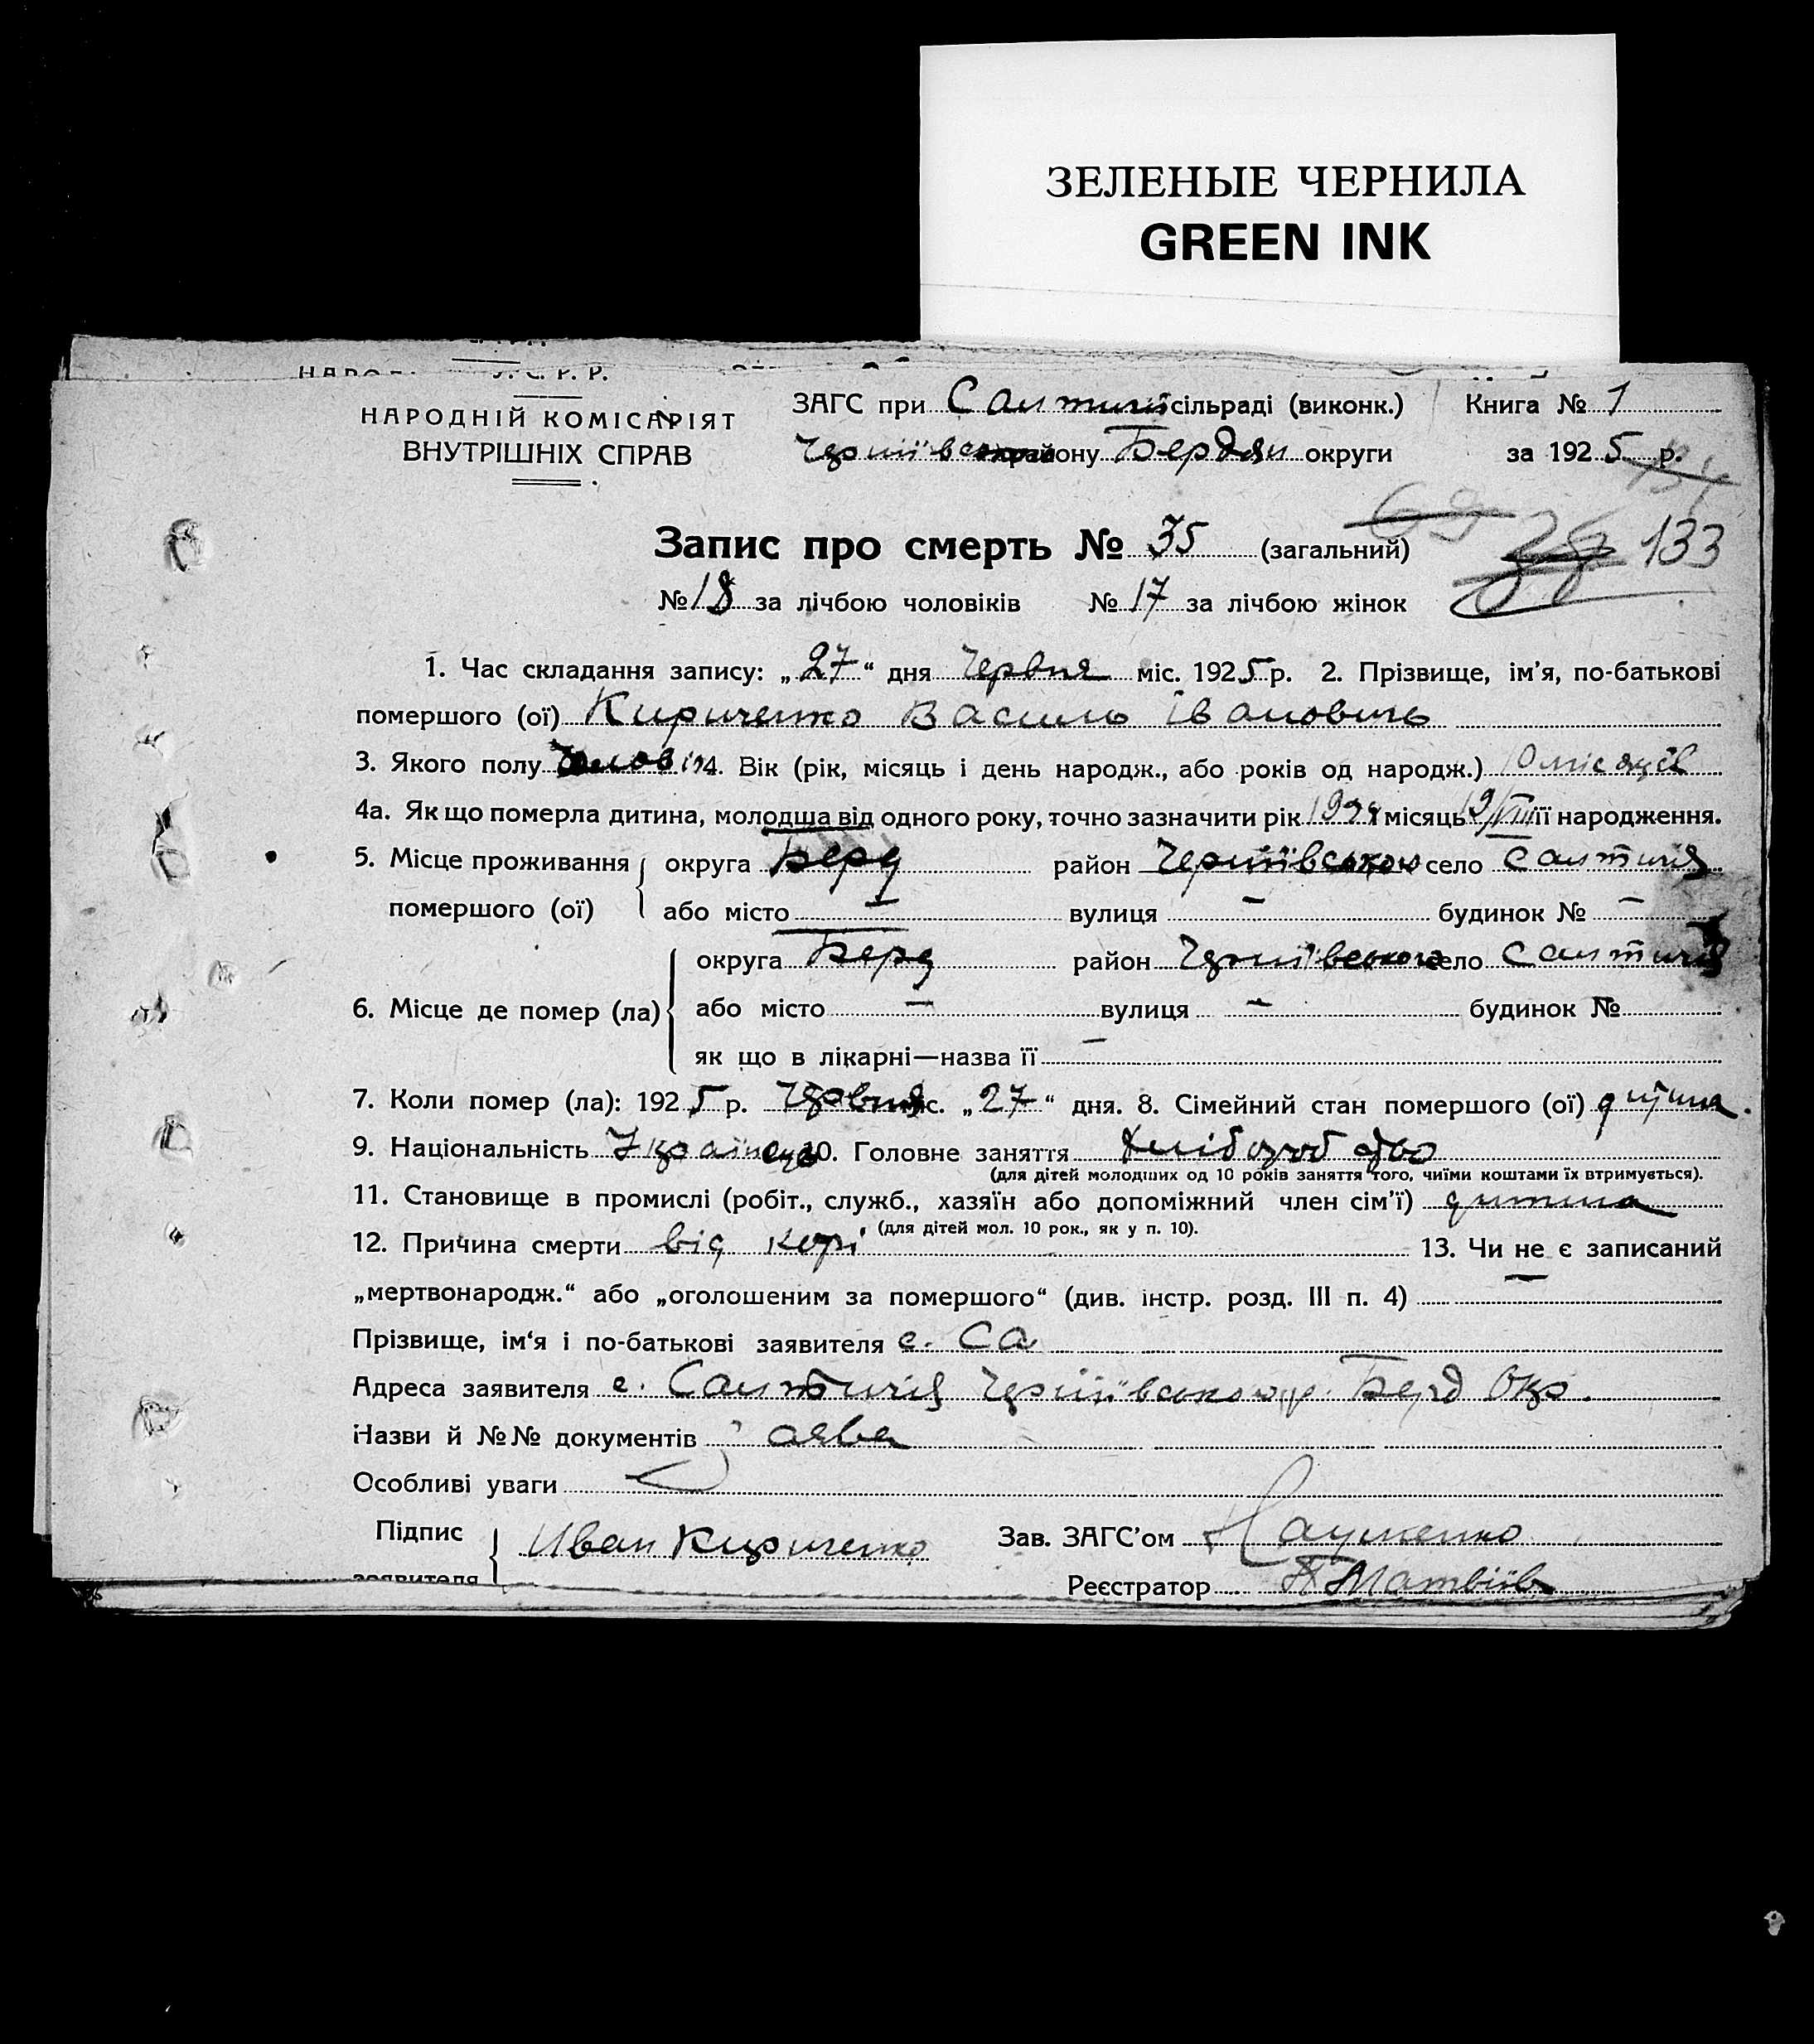 ЗЕЛЕНЫЕ ЧЕРНИЛА
GREEN INK
НАРОДНІЙ КОМІСАРІЯТ
ВНУТРІШНІХ СПРАВ
ЗАГС при Салтичії сільраді (виконк.)
Чернігівського району Бердян округи
Книга № 1
за 1925 р.
Запис про смерть № 35 (загальний)
133
№ 18 за лічбою чоловіків № 17 за лічбою жінок
1. Час складання запису: „27“ дня Червня міс. 1925 р. 2. Прізвище, ім'я, по-батькові
помершого (ої) Кириченко Василь Іванович
3. Якого полу Чоловіч 4. Вік (рік, місяць і день народж., або років од народж.) 10 місяців
4а. Як що померла дитина, молодша від одного року, точно зазначити рік 1924 місяць 19/VIII її народження.
5. Місце проживання помершого (ої) округа Берд район село Салтичія
або місто — вулиця — будинок № —
6. Місце де помер (ла) округа Берд район село Салтичія
або місто — вулиця — будинок №
як що в лікарні—назва її —
7. Коли помер (ла): 1925 р. Червня міс. „27“ дня. 8. Сімейний стан помершого (ої) дитина.
9. Національність Українець 10. Головне заняття Хліборобство
(для дітей молодших од 10 років заняття того, чиїми коштами їх втримується).
11. Становище в промислі (робіт., служб., хазяїн або допоміжний член сім'ї) дитина
(для дітей мол. 10 рок., як у п. 10).
12. Причина смерти від корі 13. Чи не є записаний
„мертвонародж.“ або „оголошеним за помершого“ (див. інстр. розд. III п. 4) —
Прізвище, ім'я і по-батькові заявителя с. Са
Адреса заявителя с. Салтичія р. Берд Окр.
Назви й №№ документів заява
Особливі уваги
Підпис заявителя Иван Кириченко
Зав. ЗАГС'ом Науменко
Реєстратор П Матвіїв